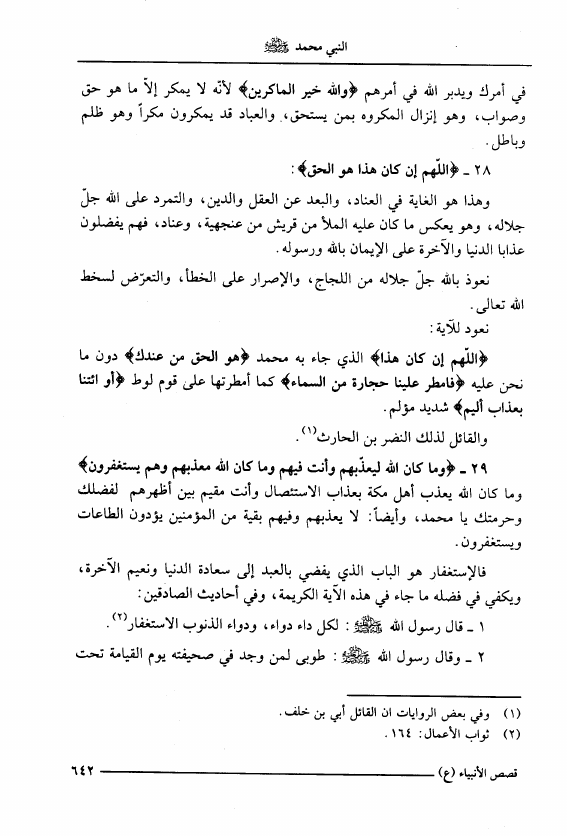 النبي محمد ﷺ
في أمرك ويدبر الله في أمرهم ﴿والله خير الماكرين﴾ لأنه لا يمكر إلاّ ما هو حق
وصواب، وهو إنزال المكروه بمن يستحق، والعباد قد يمكرون مكراً وهو ظلم
وباطل.
٢٨ ـ ﴿اللّهم إن كان هذا هو الحق﴾:
وهذا هو الغاية في العناد، والبعد عن العقل والدين، والتمرد على الله جلّ
جلاله، وهو يعكس ما كان عليه الملأ من قريش من عنجهية، وعناد، فهم يفضلون
عذابا الدنيا والآخرة على الإيمان بالله ورسوله.
نعوذ بالله جلّ جلاله من اللجاج، والإصرار على الخطأ، والتعرّض لسخط
الله تعالى.
نعود للآية:
﴿اللّهم إن كان هذا﴾ الذي جاء به محمد ﴿هو الحق من عندك﴾ دون ما
نحن عليه ﴿فامطر علينا حجارة من السماء﴾ كما أمطرتها على قوم لوط ﴿أو ائتنا
بعذاب أليم﴾ شديد مؤلم.
والقائل لذلك النضر بن الحارث(١).
٢٩ ـ ﴿وما كان الله ليعذّبهم وأنت فيهم وما كان الله معذبهم وهم يستغفرون﴾
وما كان الله يعذب أهل مكة بعذاب الاستئصال وأنت مقيم بين أظهرهم لفضلك
وحرمتك يا محمد، وأيضاً: لا يعذبهم وفيهم بقية من المؤمنين يؤدون الطاعات
ويستغفرون.
فالإستغفار هو الباب الذي يفضي بالعبد إلى سعادة الدنيا ونعيم الآخرة،
ويكفي في فضله ما جاء في هذه الآية الكريمة، وفي أحاديث الصادقين:
١ ـ قال رسول الله ﷺ: لكل داء دواء، ودواء الذنوب الاستغفار(٢).
٢ ـ وقال رسول الله ﷺ: طوبى لمن وجد في صحيفته يوم القيامة تحت
(١) وفي بعض الروايات ان القائل أبي بن خلف.
(٢) ثواب الأعمال: ١٦٤.
قصص الأنبياء (ع) ٦٤٢